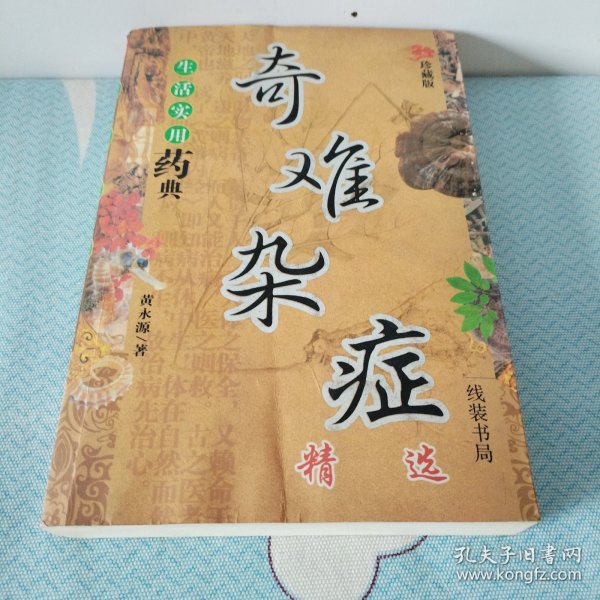 珍藏版
奇难杂症
精选
生活实用
药典
黄永源/著
线装书局
孔夫子旧书网
www.kongfz.com